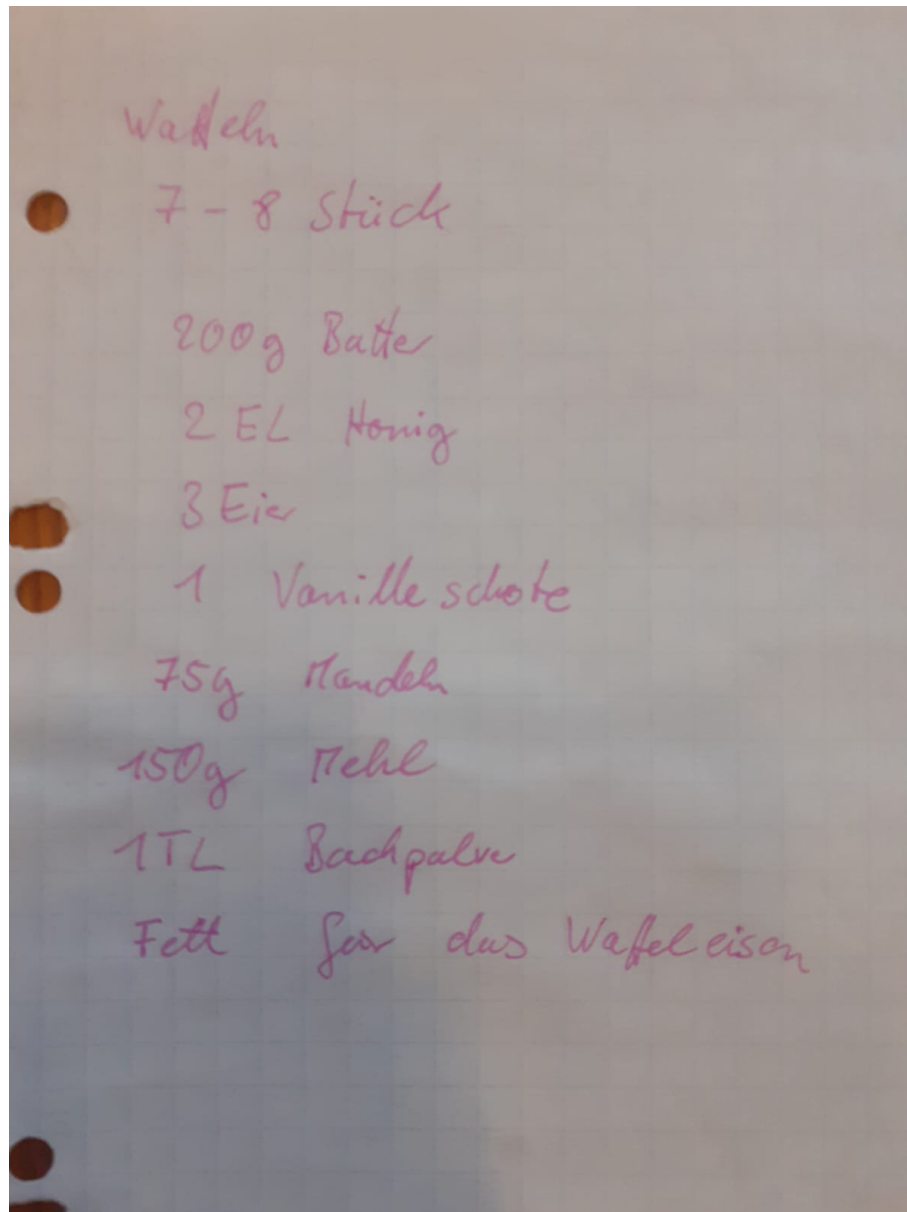 Waffeln
7 - 8 Stück
200g Butter
2 EL Honig
3 Eier
1 Vanilleschote
75g Mandeln
150g Mehl
1TL Backpulver
Fett für das Waffeleisen